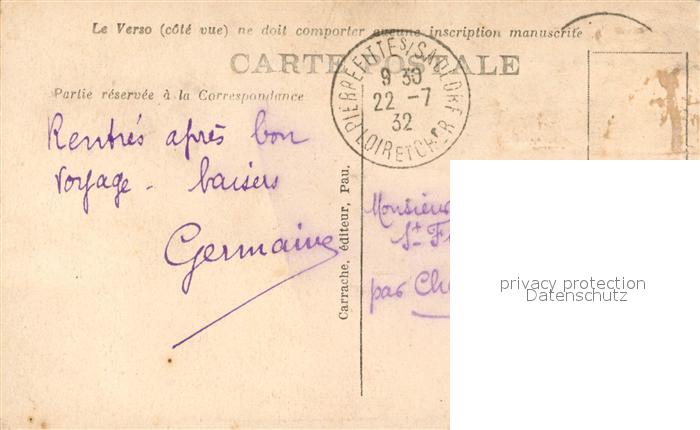 Le Verso (côté vue) ne doit comporter aucune inscription manuscrite
CARTE POSTALE
Partie réservée à la Correspondance
PIERREFITTE S/SAULDRE
9 30
22 -7
32
LOIR ET CHER
Rentrés après bon
voyage - baisers
Germaine
Carrache, éditeur, Pau.
Monsieur
St
par
privacy protection
Datenschutz